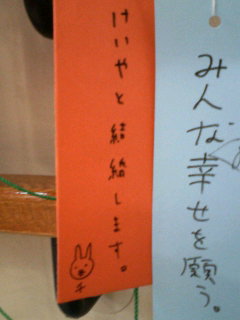 みんな幸せを願う。
けいやと結婚します。